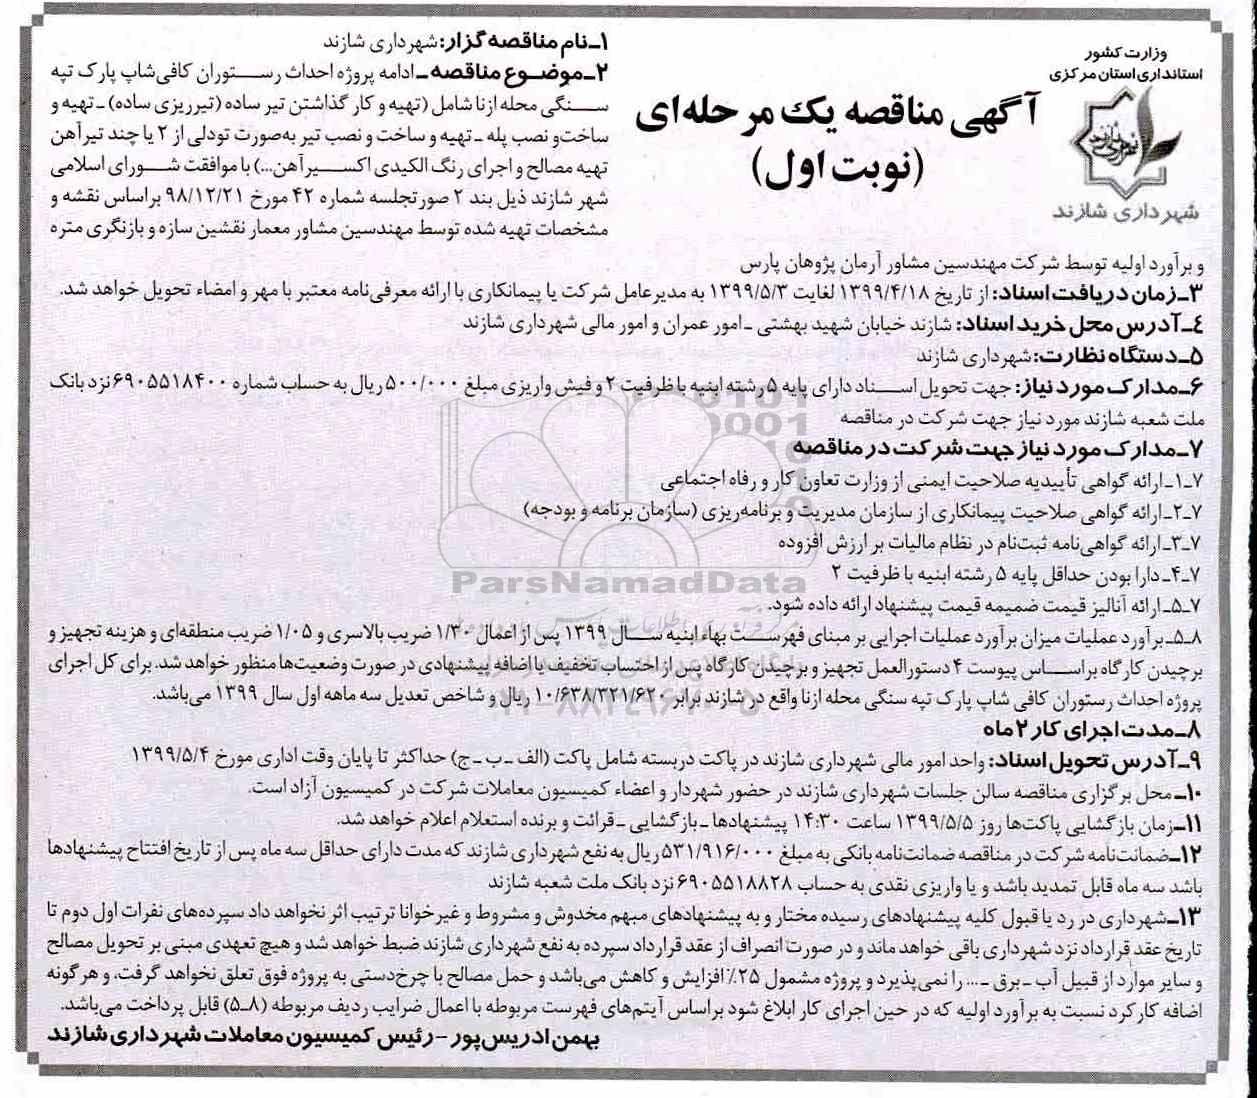 وزارت کشور
استانداری استان مرکزی
شهرداری شازند
آگهی مناقصه یک مرحله‌ای
(نوبت اول)
۱ـ نام مناقصه گزار: شهرداری شازند
۲ـ موضوع مناقصه ـ ادامه پروژه احداث رستوران کافی‌شاپ پارک تپه
سنگی محله ازنا شامل (تهیه و کار گذاشتن تیر ساده (تیرریزی ساده) ـ تهیه و
ساخت و نصب پله ـ تهیه و ساخت و نصب تیر به‌صورت تودلی از ۲ یا چند تیرآهن
تهیه مصالح و اجرای رنگ الکیدی اکسیرآهن...) با موافقت شورای اسلامی
شهر شازند ذیل بند ۲ صورتجلسه شماره ۴۲ مورخ ۹۸/۱۲/۲۱ براساس نقشه و
مشخصات تهیه شده توسط مهندسین مشاور معمار نقشین سازه و بازنگری متره
و برآورد اولیه توسط شرکت مهندسین مشاور آرمان پژوهان پارس
۳ـ زمان دریافت اسناد: از تاریخ ۱۳۹۹/۴/۱۸ لغایت ۱۳۹۹/۵/۳ به مدیرعامل شرکت یا پیمانکاری با ارائه معرفی‌نامه معتبر با مهر و امضاء تحویل خواهد شد.
۴ـ آدرس محل خرید اسناد: شازند خیابان شهید بهشتی ـ امور عمران و امور مالی شهرداری شازند
۵ـ دستگاه نظارت: شهرداری شازند
۶ـ مدارک مورد نیاز: جهت تحویل اسناد دارای پایه ۵ رشته ابنیه با ظرفیت ۲ و فیش واریزی مبلغ ۵۰۰/۰۰۰ ریال به حساب شماره ۶۹۰۵۵۱۸۴۰۰ نزد بانک
ملت شعبه شازند مورد نیاز جهت شرکت در مناقصه
۷ـ مدارک مورد نیاز جهت شرکت در مناقصه
۷ـ۱ـ ارائه گواهی تأییدیه صلاحیت ایمنی از وزارت تعاون کار و رفاه اجتماعی
۷ـ۲ـ ارائه گواهی صلاحیت پیمانکاری از سازمان مدیریت و برنامه‌ریزی (سازمان برنامه و بودجه)
۷ـ۳ـ ارائه گواهی‌نامه ثبت‌نام در نظام مالیات بر ارزش افزوده
۷ـ۴ـ دارا بودن حداقل پایه ۵ رشته ابنیه با ظرفیت ۲
۷ـ۵ـ ارائه آنالیز قیمت ضمیمه قیمت پیشنهاد ارائه داده شود.
ParsNamadData
۸ـ۵ـ برآورد عملیات میزان برآورد عملیات اجرایی بر مبنای فهرست بهاء ابنیه سال ۱۳۹۹ پس از اعمال ۱/۳۰ ضریب بالاسری و ۱/۰۵ ضریب منطقه‌ای و هزینه تجهیز و
برچیدن کارگاه براساس پیوست ۴ دستورالعمل تجهیز و برچیدن کارگاه پس از احتساب تخفیف یا اضافه پیشنهادی در صورت وضعیت‌ها منظور خواهد شد. برای کل اجرای
پروژه احداث رستوران کافی شاپ پارک تپه سنگی محله ازنا واقع در شازند برابر ۱۰/۶۳۸/۳۲۱/۶۲۰ ریال و شاخص تعدیل سه ماهه اول سال ۱۳۹۹ می‌باشد.
۸ـ مدت اجرای کار ۲ ماه
۹ـ آدرس تحویل اسناد: واحد امور مالی شهرداری شازند در پاکت دربسته شامل پاکت (الف ـ ب ـ ج) حداکثر تا پایان وقت اداری مورخ ۱۳۹۹/۵/۴
۱۰ـ محل برگزاری مناقصه سالن جلسات شهرداری شازند در حضور شهردار و اعضاء کمیسیون معاملات شرکت در کمیسیون آزاد است.
۱۱ـ زمان بازگشایی پاکت‌ها روز ۱۳۹۹/۵/۵ ساعت ۱۴:۳۰ پیشنهادها ـ بازگشایی ـ قرائت و برنده استعلام اعلام خواهد شد.
۱۲ـ ضمانت‌نامه شرکت در مناقصه ضمانت‌نامه بانکی به مبلغ ۵۳۱/۹۱۶/۰۰۰ ریال به نفع شهرداری شازند که مدت دارای حداقل سه ماه پس از تاریخ افتتاح پیشنهادها
باشد سه ماه قابل تمدید باشد و یا واریزی نقدی به حساب ۶۹۰۵۵۱۸۸۲۸ نزد بانک ملت شعبه شازند
۱۳ـ شهرداری در رد یا قبول کلیه پیشنهادهای رسیده مختار و به پیشنهادهای مبهم مخدوش و مشروط و غیرخوانا ترتیب اثر نخواهد داد سپرده‌های نفرات اول دوم تا
تاریخ عقد قرارداد نزد شهرداری باقی خواهد ماند و در صورت انصراف از عقد قرارداد سپرده به نفع شهرداری شازند ضبط خواهد شد و هیچ تعهدی مبنی بر تحویل مصالح
و سایر موارد از قبیل آب ـ برق ـ ... را نمی‌پذیرد و پروژه مشمول ۲۵٪ افزایش و کاهش می‌باشد و حمل مصالح با چرخ‌دستی به پروژه فوق تعلق نخواهد گرفت، و هرگونه
اضافه کارکرد نسبت به برآورد اولیه که در حین اجرای کار ابلاغ شود براساس آیتم‌های فهرست مربوطه با اعمال ضرایب ردیف مربوطه (۸ـ۵) قابل پرداخت می‌باشد.
بهمن ادریس‌پور – رئیس کمیسیون معاملات شهرداری شازند